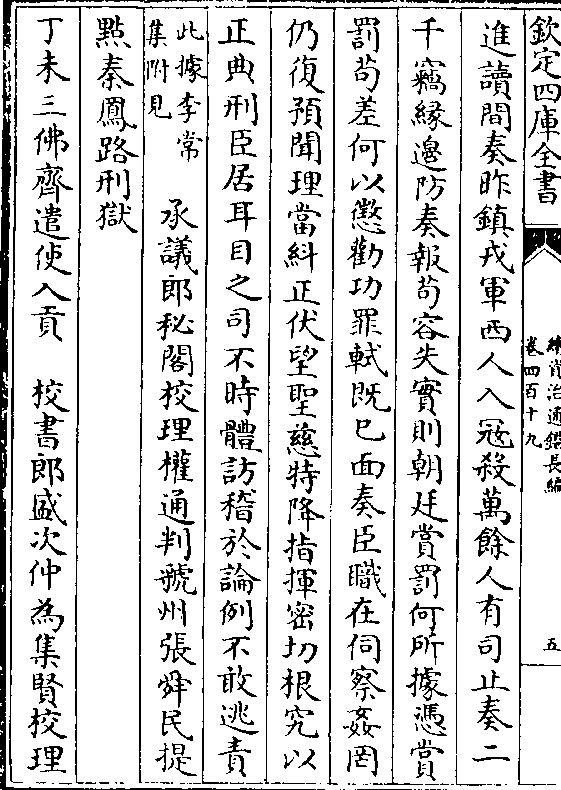 欽定四庫全書
續資治通鑑長編
卷四百十九
五
進讀間奏昨鎮戎軍西人入冦殺萬餘人有司止奏二
千竊緣邊防奏報苟容失實則朝廷賞罰何所據憑賞
罰苟差何以懲勸功罪軾既已面奏臣職在伺察姦罔
仍復預聞理當糾正伏望聖慈特降指揮密切根究以
正典刑臣居耳目之司不時體訪稽於論例不敢逃責
此據李常
集附見
承議郎秘閣校理權通判虢州張舜民提
點秦鳳路刑獄
丁未三佛齊遣使入貢　校書郎盛次仲為集賢校理